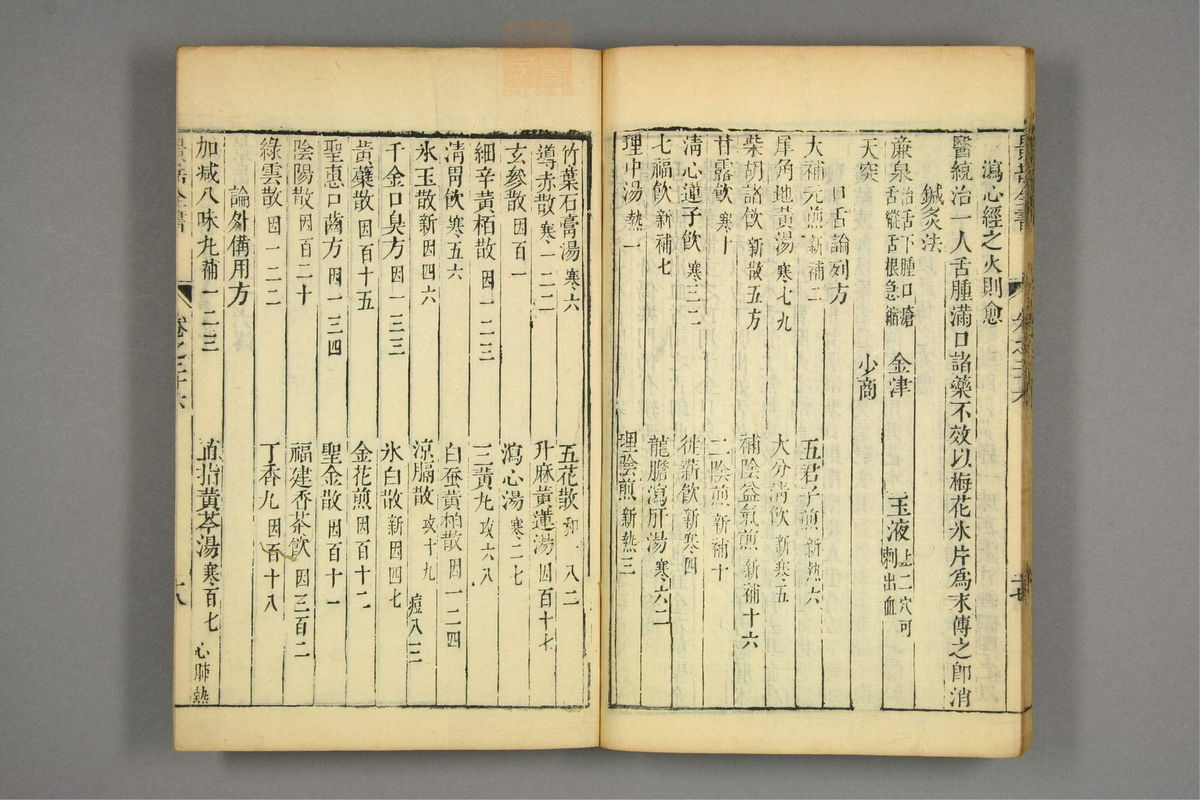 瀉心經之火則愈
醫統治一人舌腫滿口諸藥不效以梅花氷片爲末傅之即消
鍼灸法
廉泉 治舌下腫口瘡舌縱舌根急縮 金津 玉液 上二穴可刺出血
天突 少商
口舌論列方
大補元煎 新補二 五君子煎 新熱六
犀角地黃湯 寒七九 大分清飲 新寒五
柴胡諸飲 新散五方 補陰益氣煎 新補十六
甘露飲 寒十 二陰煎 新補十
清心蓮子飲 寒三二 徙薪飲 新寒四
七福飲 新補七 龍膽瀉肝湯 寒六二
理中湯 熱一 理陰煎 新熱三
竹葉石膏湯 寒六 五花散 和一八二
導赤散 寒一二二 升麻黃連湯 因百十七
玄參散 因百一 瀉心湯 寒二七
細辛黃柏散 因一二三 三黃丸 攻六八
清胃飲 寒五六 白蚕黃柏散 因一二四
氷玉散 新因四六 涼膈散 攻十九 痘八三
千金口臭方 因一三三 氷白散 新因四七
黃蘗散 因百十五 金花煎 因百十二
聖惠口齒方 因一三四 聖金散 因百十一
陰陽散 因百二十 福建香茶飲 因三百二
綠雲散 因一二二 丁香丸 因百十八
論外備用方
加减八味丸 補一二三 直指黃芩湯 寒百七 心肺熱
景岳全書 卷之二十六 十八